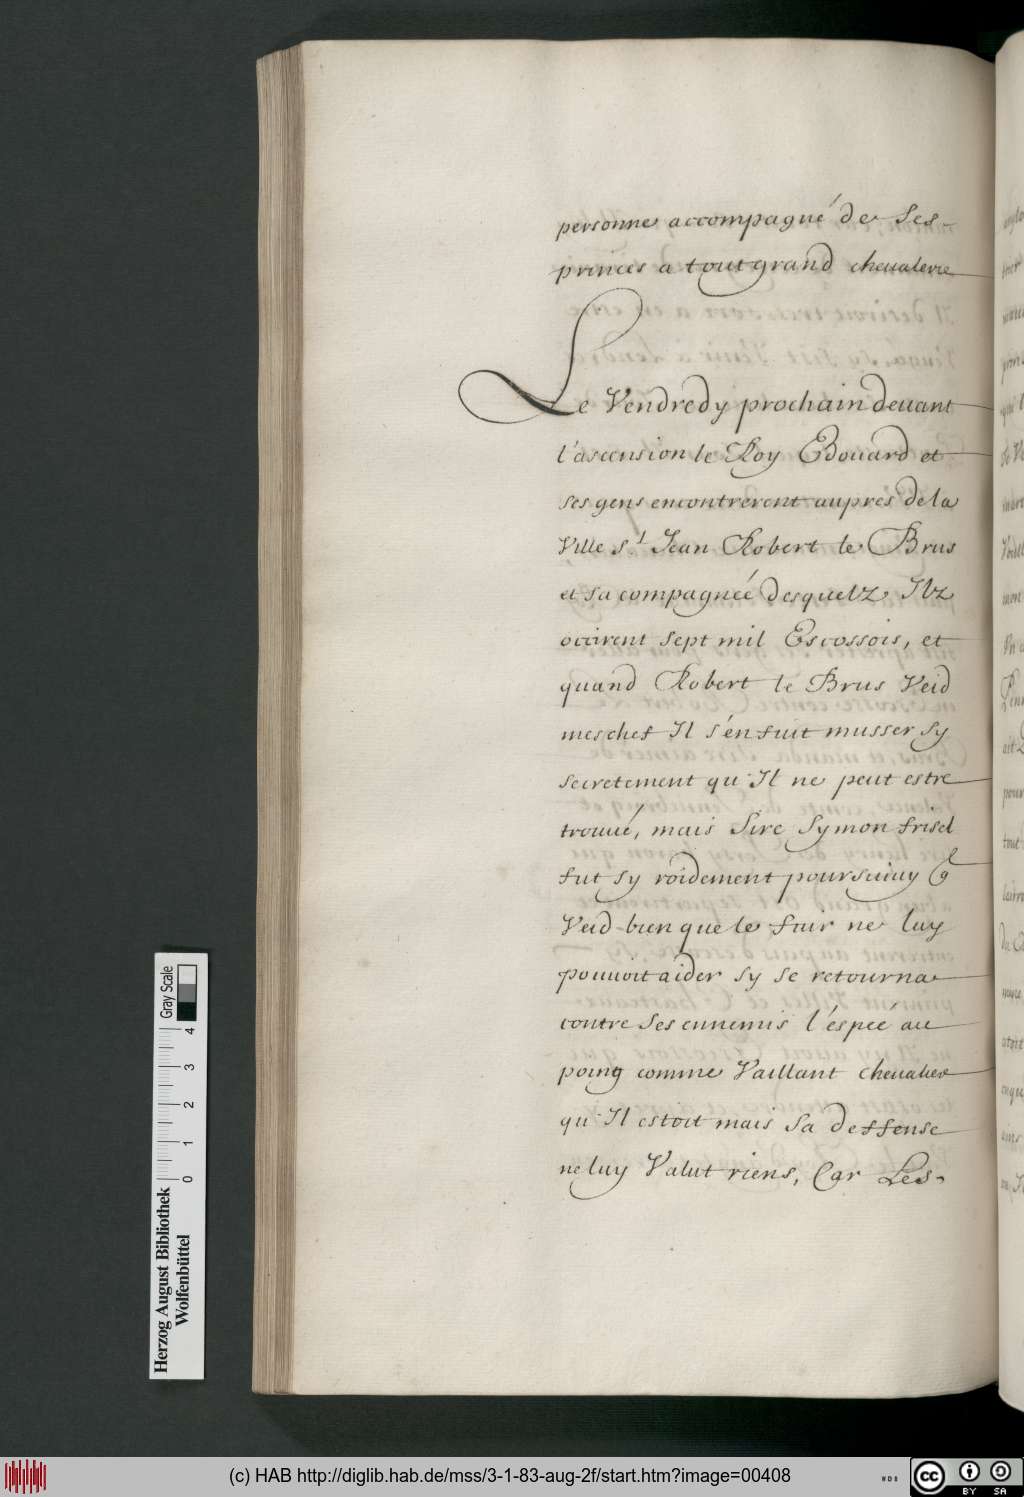 personne accompagné de Ses
princes a tout grand chevalerie
Le Vendredy prochain devant
l'ascension le Roy Edouard et
ses gens encontrerent aupres de la
Ville St Jean Robert le Brus
et sa compagnéé desquelz Ilz
occirent sept mil Escossois, et
quand Robert le Brus Veid
meschef Il s'en fuit musser sy
secretement qu'Il ne peut estre
trouué, mais Sire Symon frisel
fut sy roidement poursuiuy
Veid bien que le fuir ne luy
pouuoit aider sy se retourna
contre ses ennemis l'éspeé au
poing comme Vaillant cheualier
qu'Il estoit mais sa deffense
ne luy Valut riens, Car Les
Gray Scale
4
3
2
1
0
Herzog August Bibliothek
Wolfenbüttel
(c) HAB http://diglib.hab.de/mss/3-1-83-aug-2f/start.htm?image=00408
cc BY SA